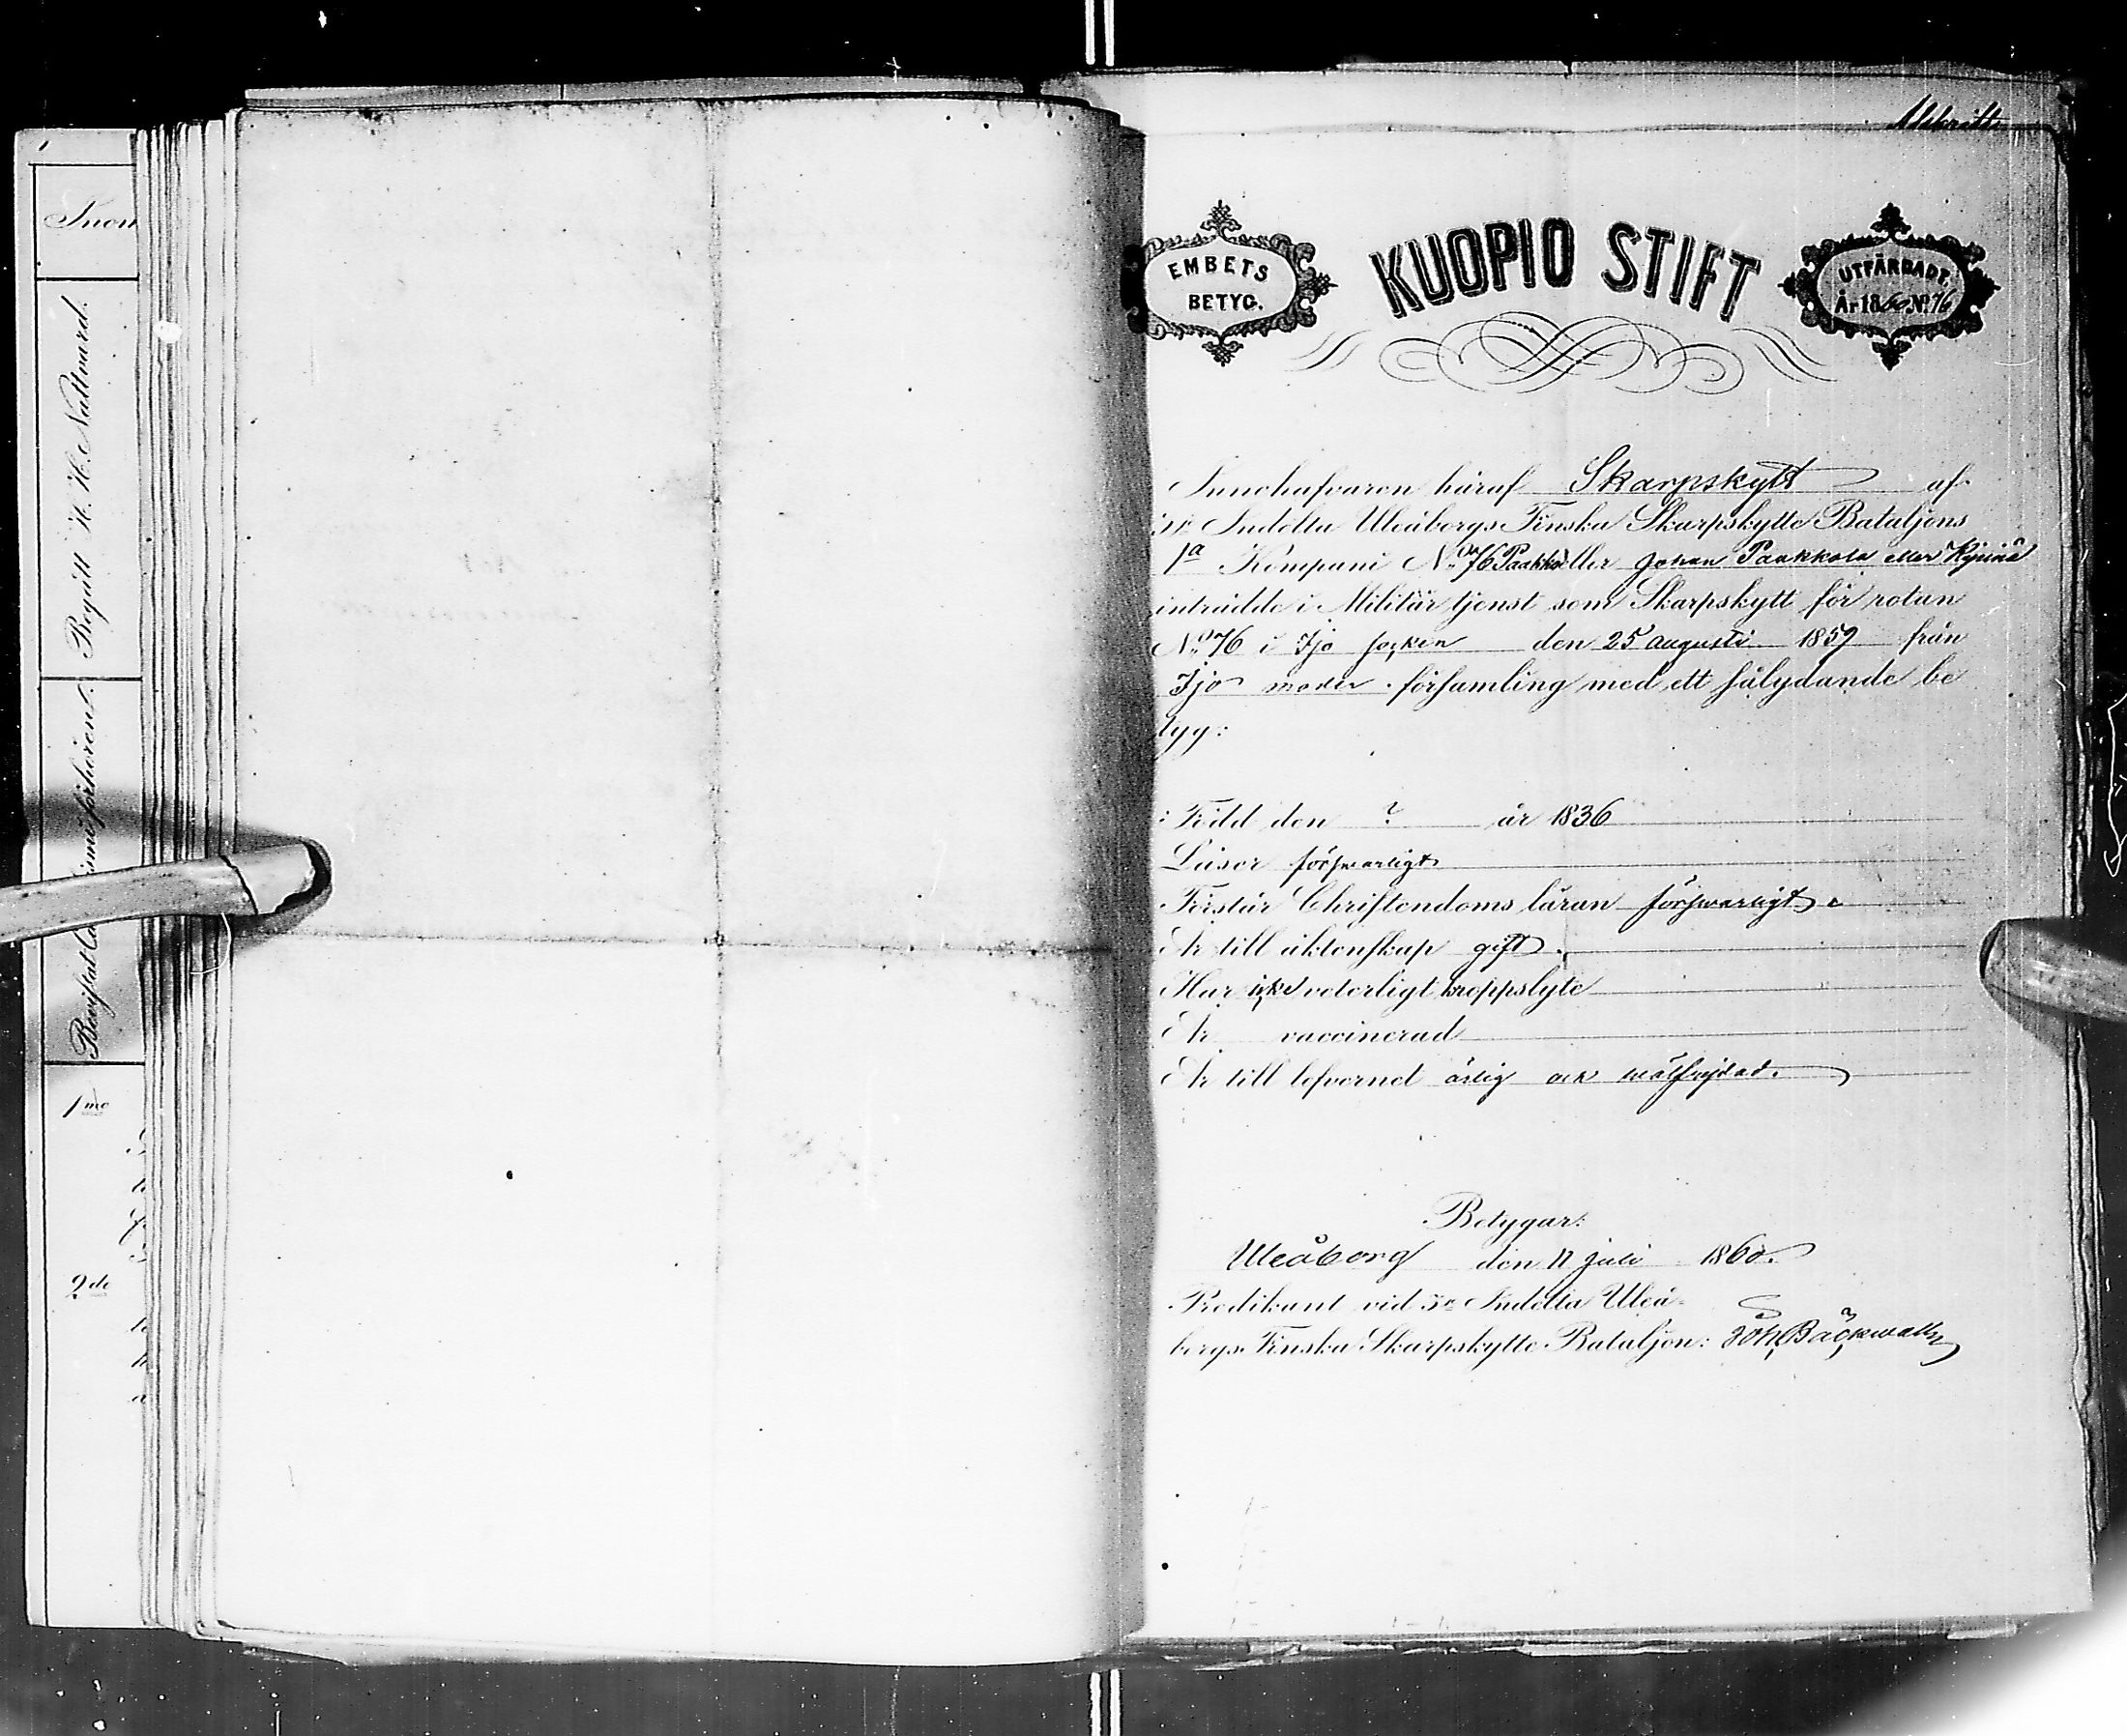 Afskrift
EMBETS
BETYG.
KUOPIO STIFT
UTFÄRDADT
År 1860 No 76
Innehafvaren häraf Skarpskytt af
5:e Indelta Uleåborgs Finska Skarpskytte Bataljons
1a Kompani No 76 Paakkola eller Johan Paakkola eller
inträdde i Militär tjenst som Skarpskytt för rotan
No 76 i Ijo socken den 25 augusti 1857 från
Ijo moder församling med ett sålydande be
tyg:
Född den ? år 1836
Läser försvarligt
Förstår Christendoms läran försvarligt.
Är till äktenskap gift.
Har icke veterligt kroppslyte
Är vaccinerad
Är till lefvernet ärlig och wälfrejdad.
Betygar:
Uleåborg den 11 juli 1860.
Predikant vid 5:e Indelta Uleå-
borgs Finska Skarpskytte Bataljon: Joh, Bäckwall
Inom
Begått H. H. Nattvard.
1mo
2do